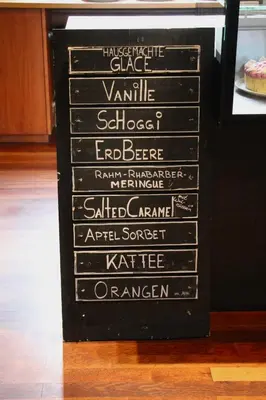 HAUSGEMACHTE
GLACE
VANILLE
SCHOGGI
ERDBEERE
RAHM-RHABARBER-
MERINGUE
SALTED CARAMEL
APFELSORBET
KAFFEE
ORANGEN